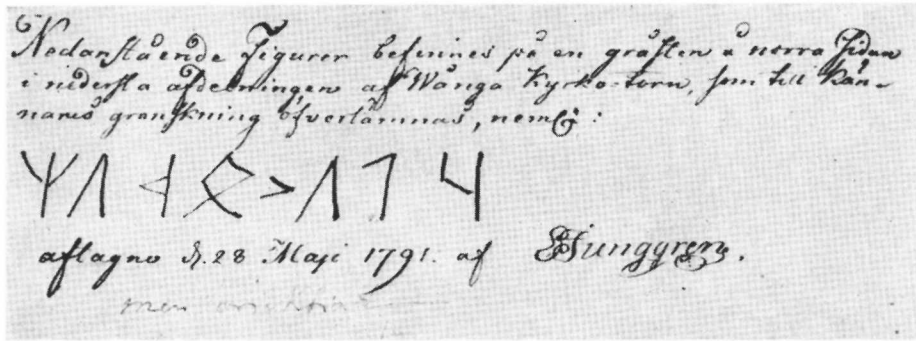 Nedanstående Figurer befinnes på en gråsten å norra sidan
i nedersta afdelningen af Wånga Kyrko-torn, som till Kän-
nares granskning öfverlämnas, neml:
ᛉᚢᚦᛟᚲᚢᚨᚺ
aftagne d. 28 Maji 1791. af Ljunggren.
men